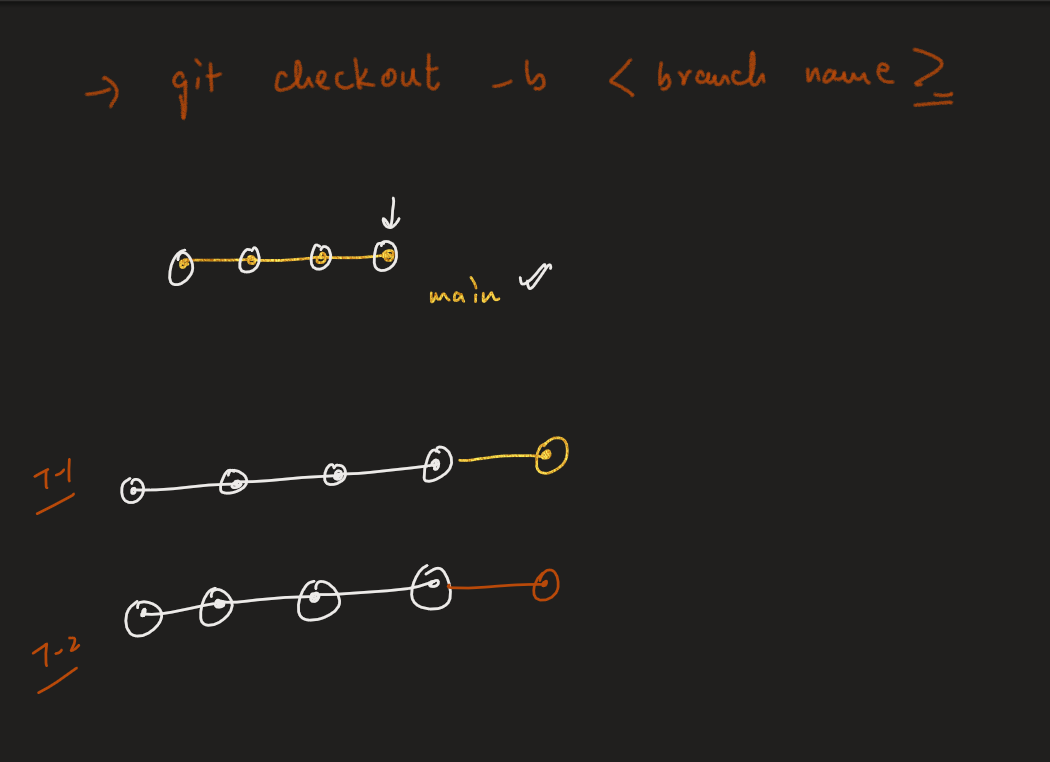 → git checkout -b <branch name>
main
T-1
T-2